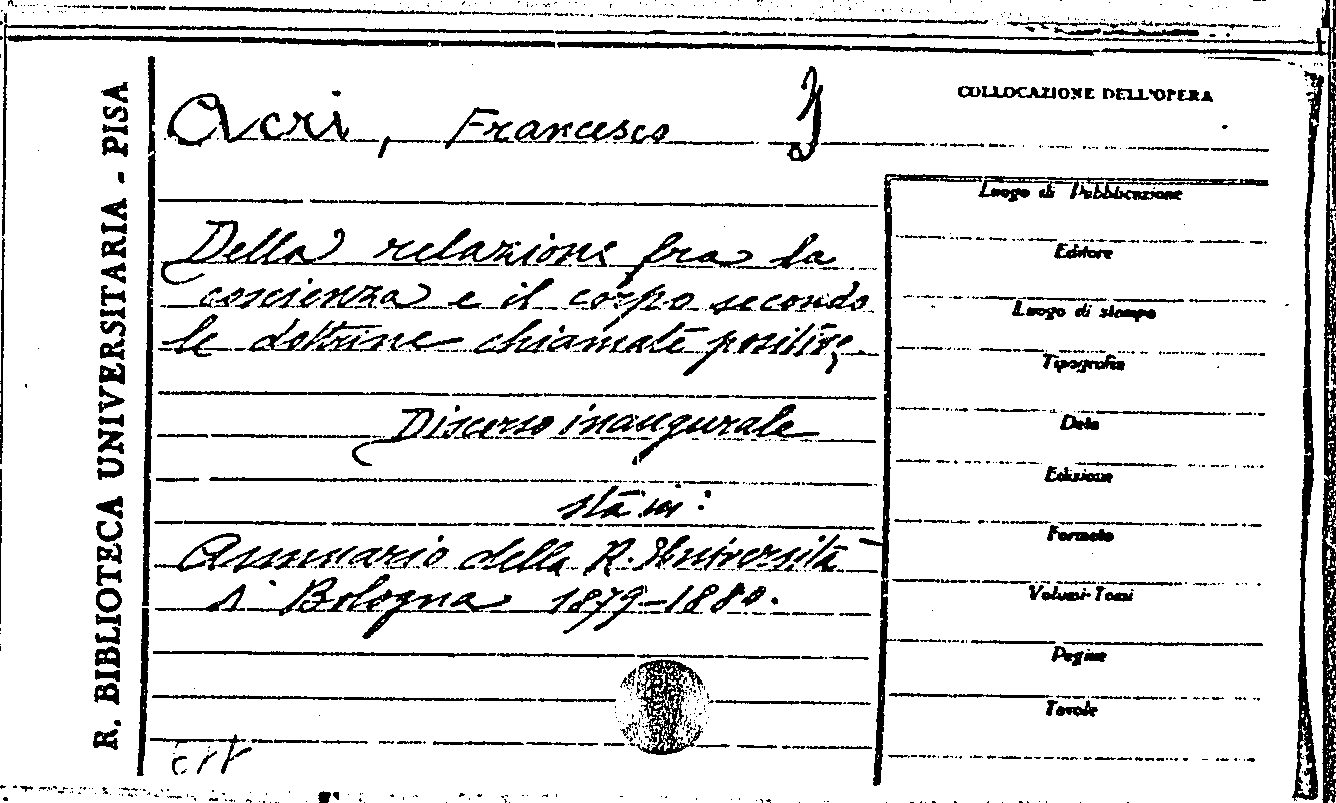 R. BIBLIOTECA UNIVERSITARIA - PISA
Acri, Francesco 3
COLLOCAZIONE DELL'OPERA
Della relazione fra la
coscienza e il corpo secondo
le dottrine chiamate positive.
Discorso inaugurale
sta in:
Annuario della R. Università
di Bologna 1879-1880.
Luogo di Pubblicazione
Editore
Luogo di stampa
Tipografia
Data
Edizione
Formato
Volumi-Tomi
Pagine
Tavole